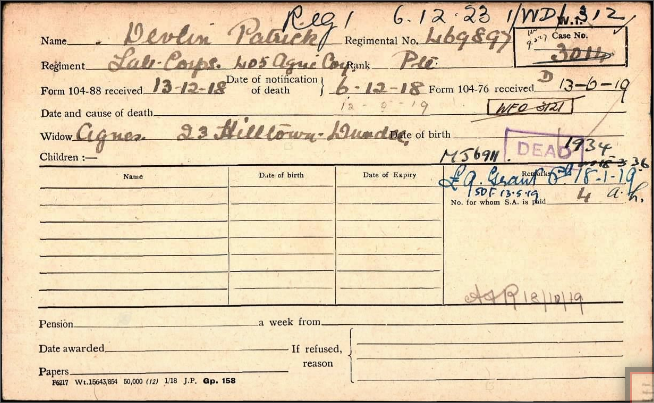 Reg 1 6.12.23 1/WD/312
W.T.
Name Devlin Patrick Regimental No. 469897 Case No.
3014
Regiment Lab-Corps. 405 Agric Coy. Rank Pte
Form 104-88 received 13-12-18 Date of notification of death 6-12-18 Form 104-76 received D 13-6-19
Date and cause of death
Widow Agnes. 23 Hilltown-Dundee Date of birth
DEAD 1934
Children :— MJ6911
Name Date of birth Date of Expiry Remarks
£9. Grant 18-1-19
SDF. 13.5.19
No. for whom S.A. is paid 4
18/10/19
Pension a week from
Date awarded If refused, reason
Papers
F6217 Wt.15643/854 50,000 (12) 1/18 J.P. Gp. 158